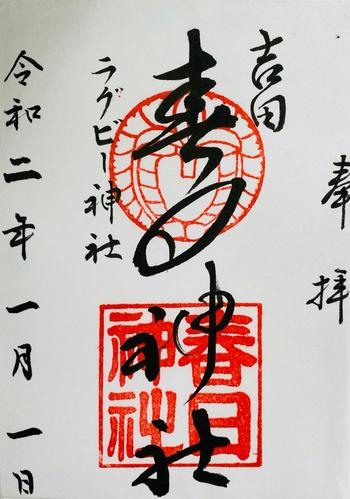 奉拝
吉田
春日神社
春日神社
ラグビー神社
令和二年一月一日